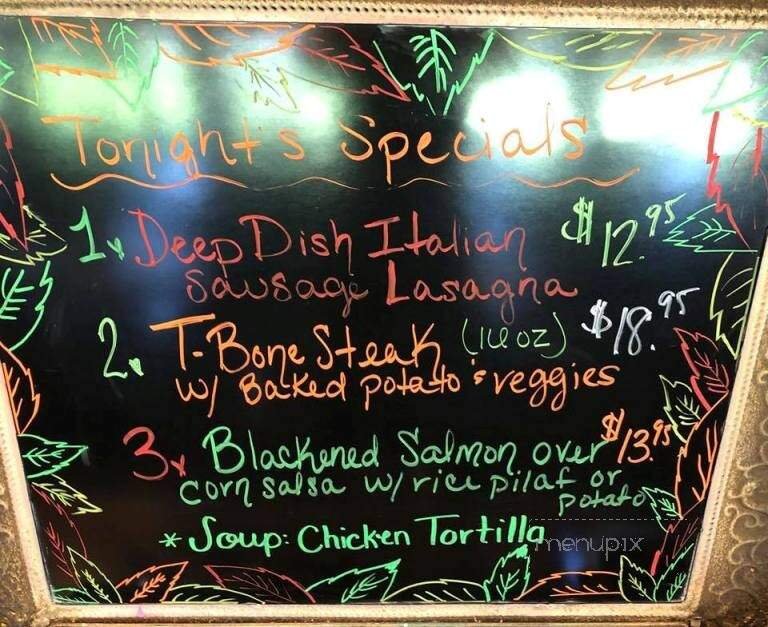 Tonight's Specials
1. Deep Dish Italian $12.95
Sausage Lasagna
2. T-Bone Steak (16 oz) $18.95
w/ Baked potato & veggies
3. Blackened Salmon over $13.95
corn salsa w/ rice pilaf or
potato
* Soup: Chicken Tortilla
menupix